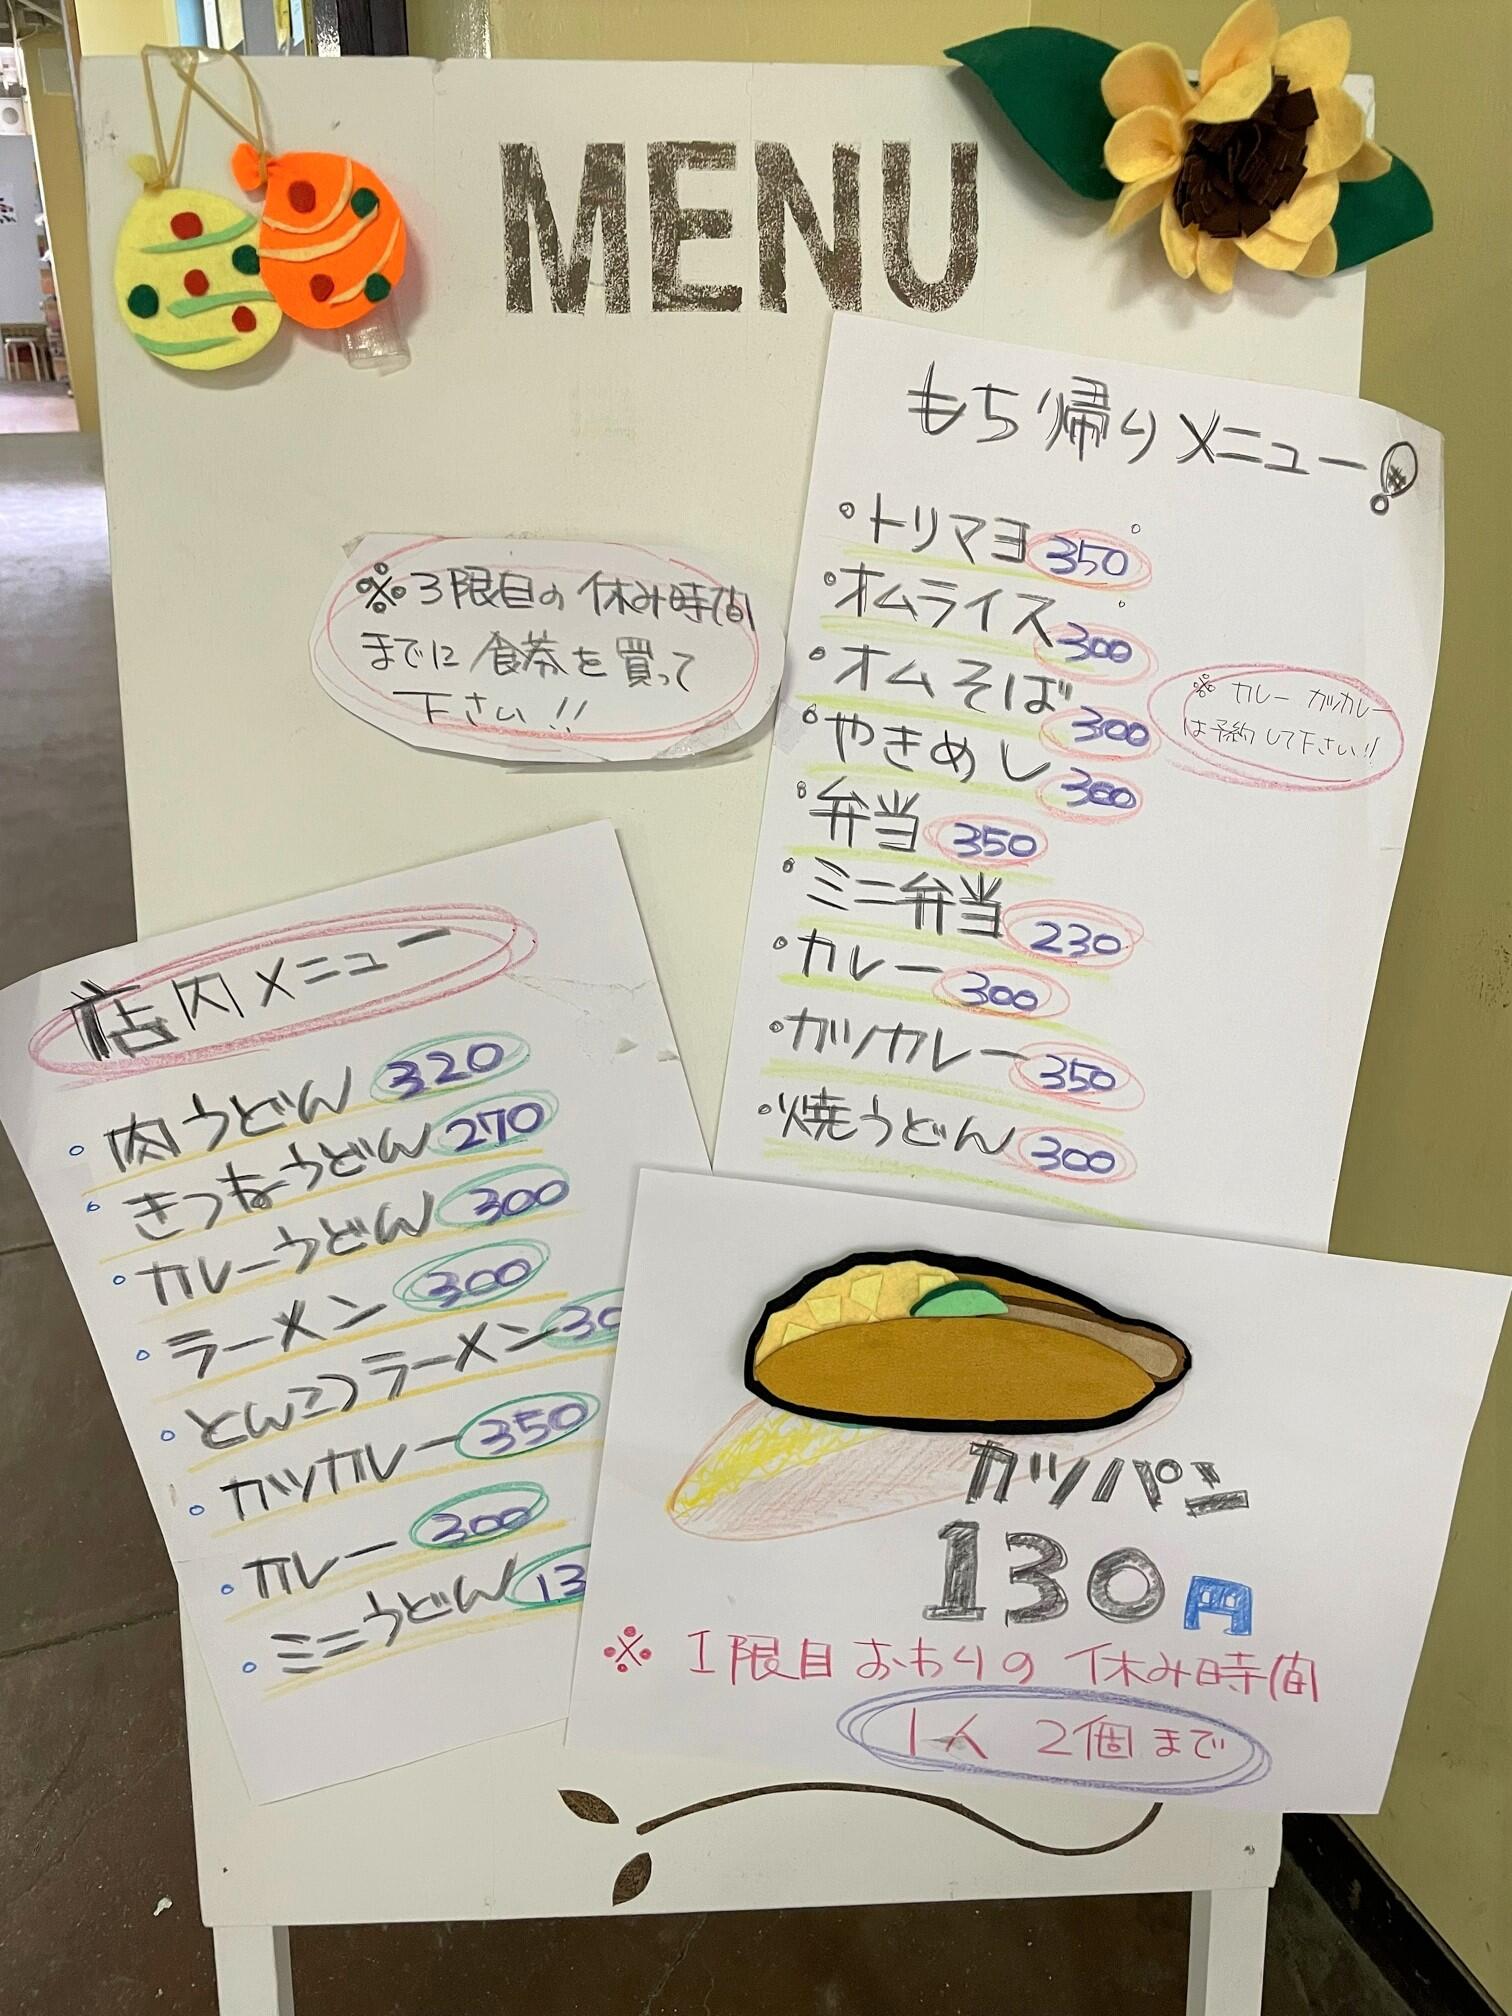 MENU
もち帰りメニュー!
・トリマヨ 350
・オムライス 300
・オムそば 300
・やきめし 300
・弁当 350
・ミニ弁当 230
・カレー 300
・カツカレー 350
・焼うどん 300
※カレー カツカレー
は予約して下さい!!
※3限目の休み時間
までに食券を買って
下さい!!
店内メニュー
・肉うどん 320
・きつねうどん 270
・カレーうどん 300
・ラーメン 300
・とんこつラーメン 30
・カツカレー 350
・カレー 300
・ミニうどん 13
カツパン
130円
※1限目おわりの休み時間
1人 2個まで